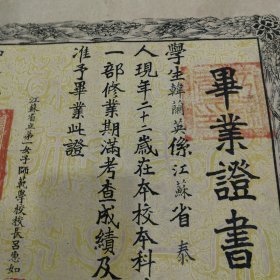 畢業證書
學生韓蘭英係江蘇省泰
人現年二十二歲在本校本科
一部修業期滿考查成績及
准予畢業此證
江蘇省立第一女子師範學校校長呂惠如